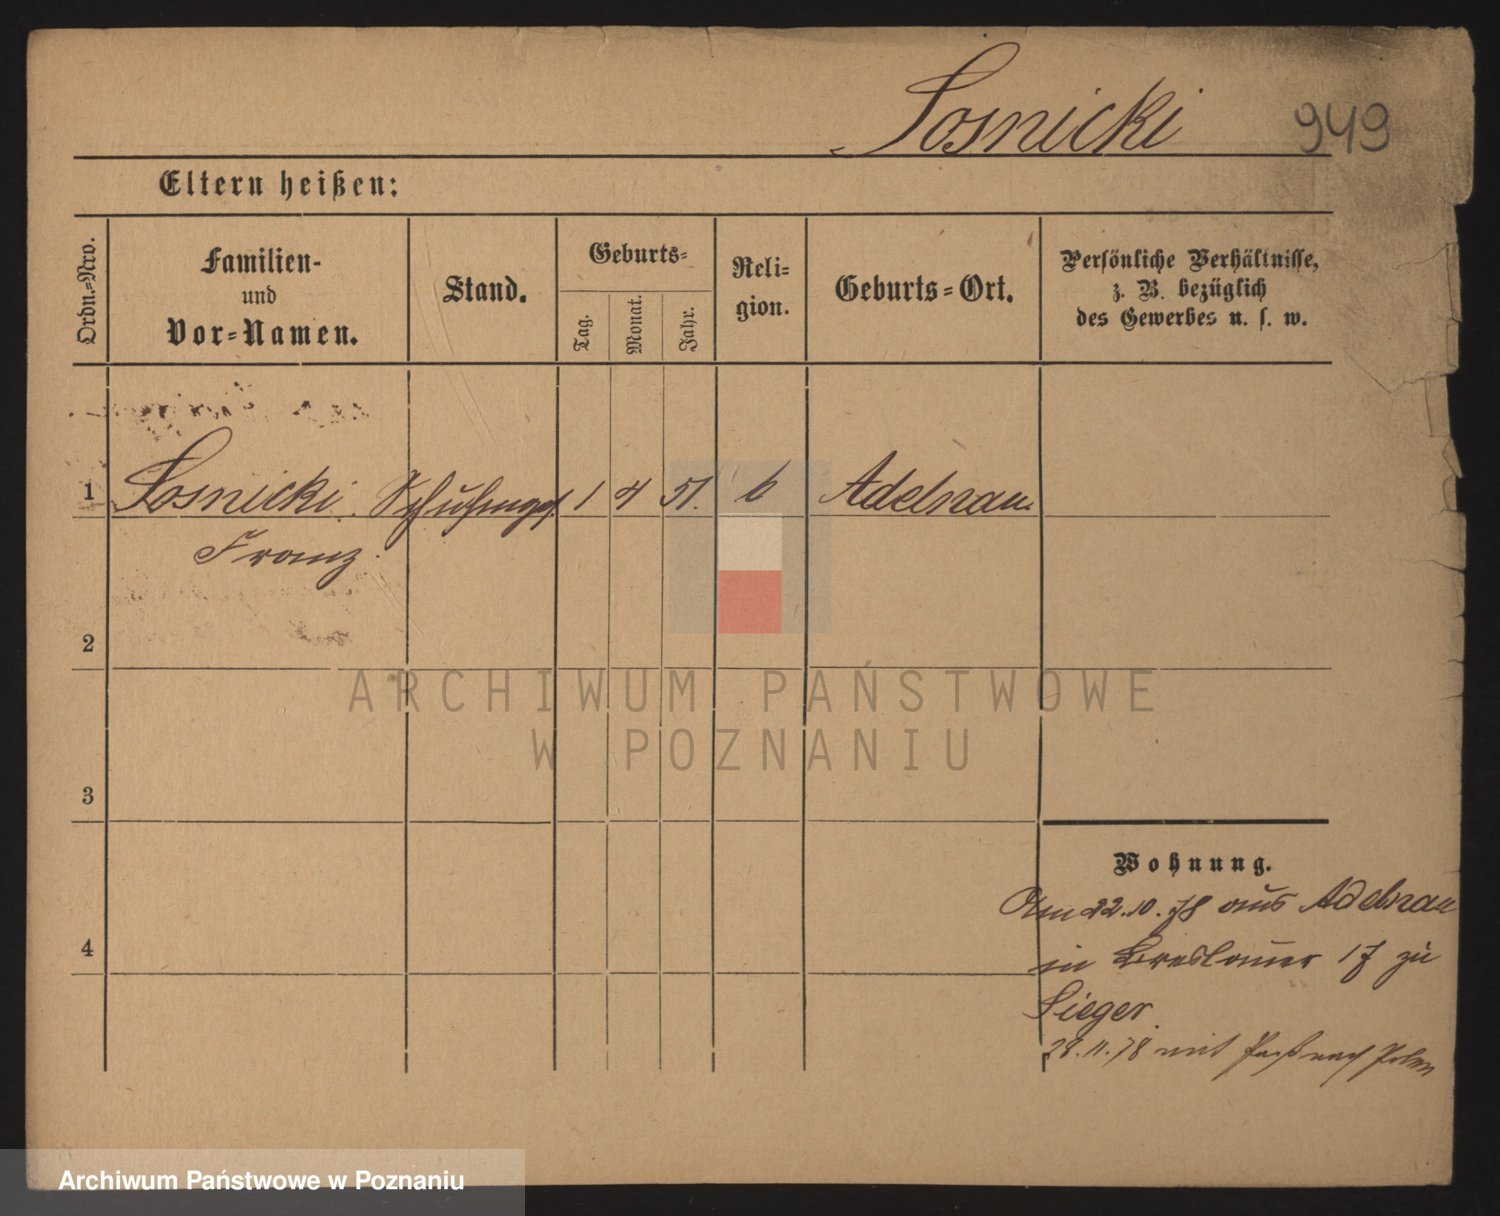 Sosnicki 949
Eltern heißen:
Ordn.-Nro.
Familien-
und
Vor-Namen.
Stand.
Geburts-
Tag.
Monat.
Jahr.
Reli-
gion.
Geburts-Ort.
Persönliche Verhältnisse,
z. B. bezüglich
des Gewerbes u. s. w.
1 Sosnicki 1 4 51. Adelnau
Franz
2
ARCHIWUM PAŃSTWOWE
W POZNANIU
3
Wohnung.
Am 22.10.78 aus Adelnau
4
in Breslauer 17 zu
Sieger.
28.11.78 mit Paß nach Polen
Archiwum Państwowe w Poznaniu